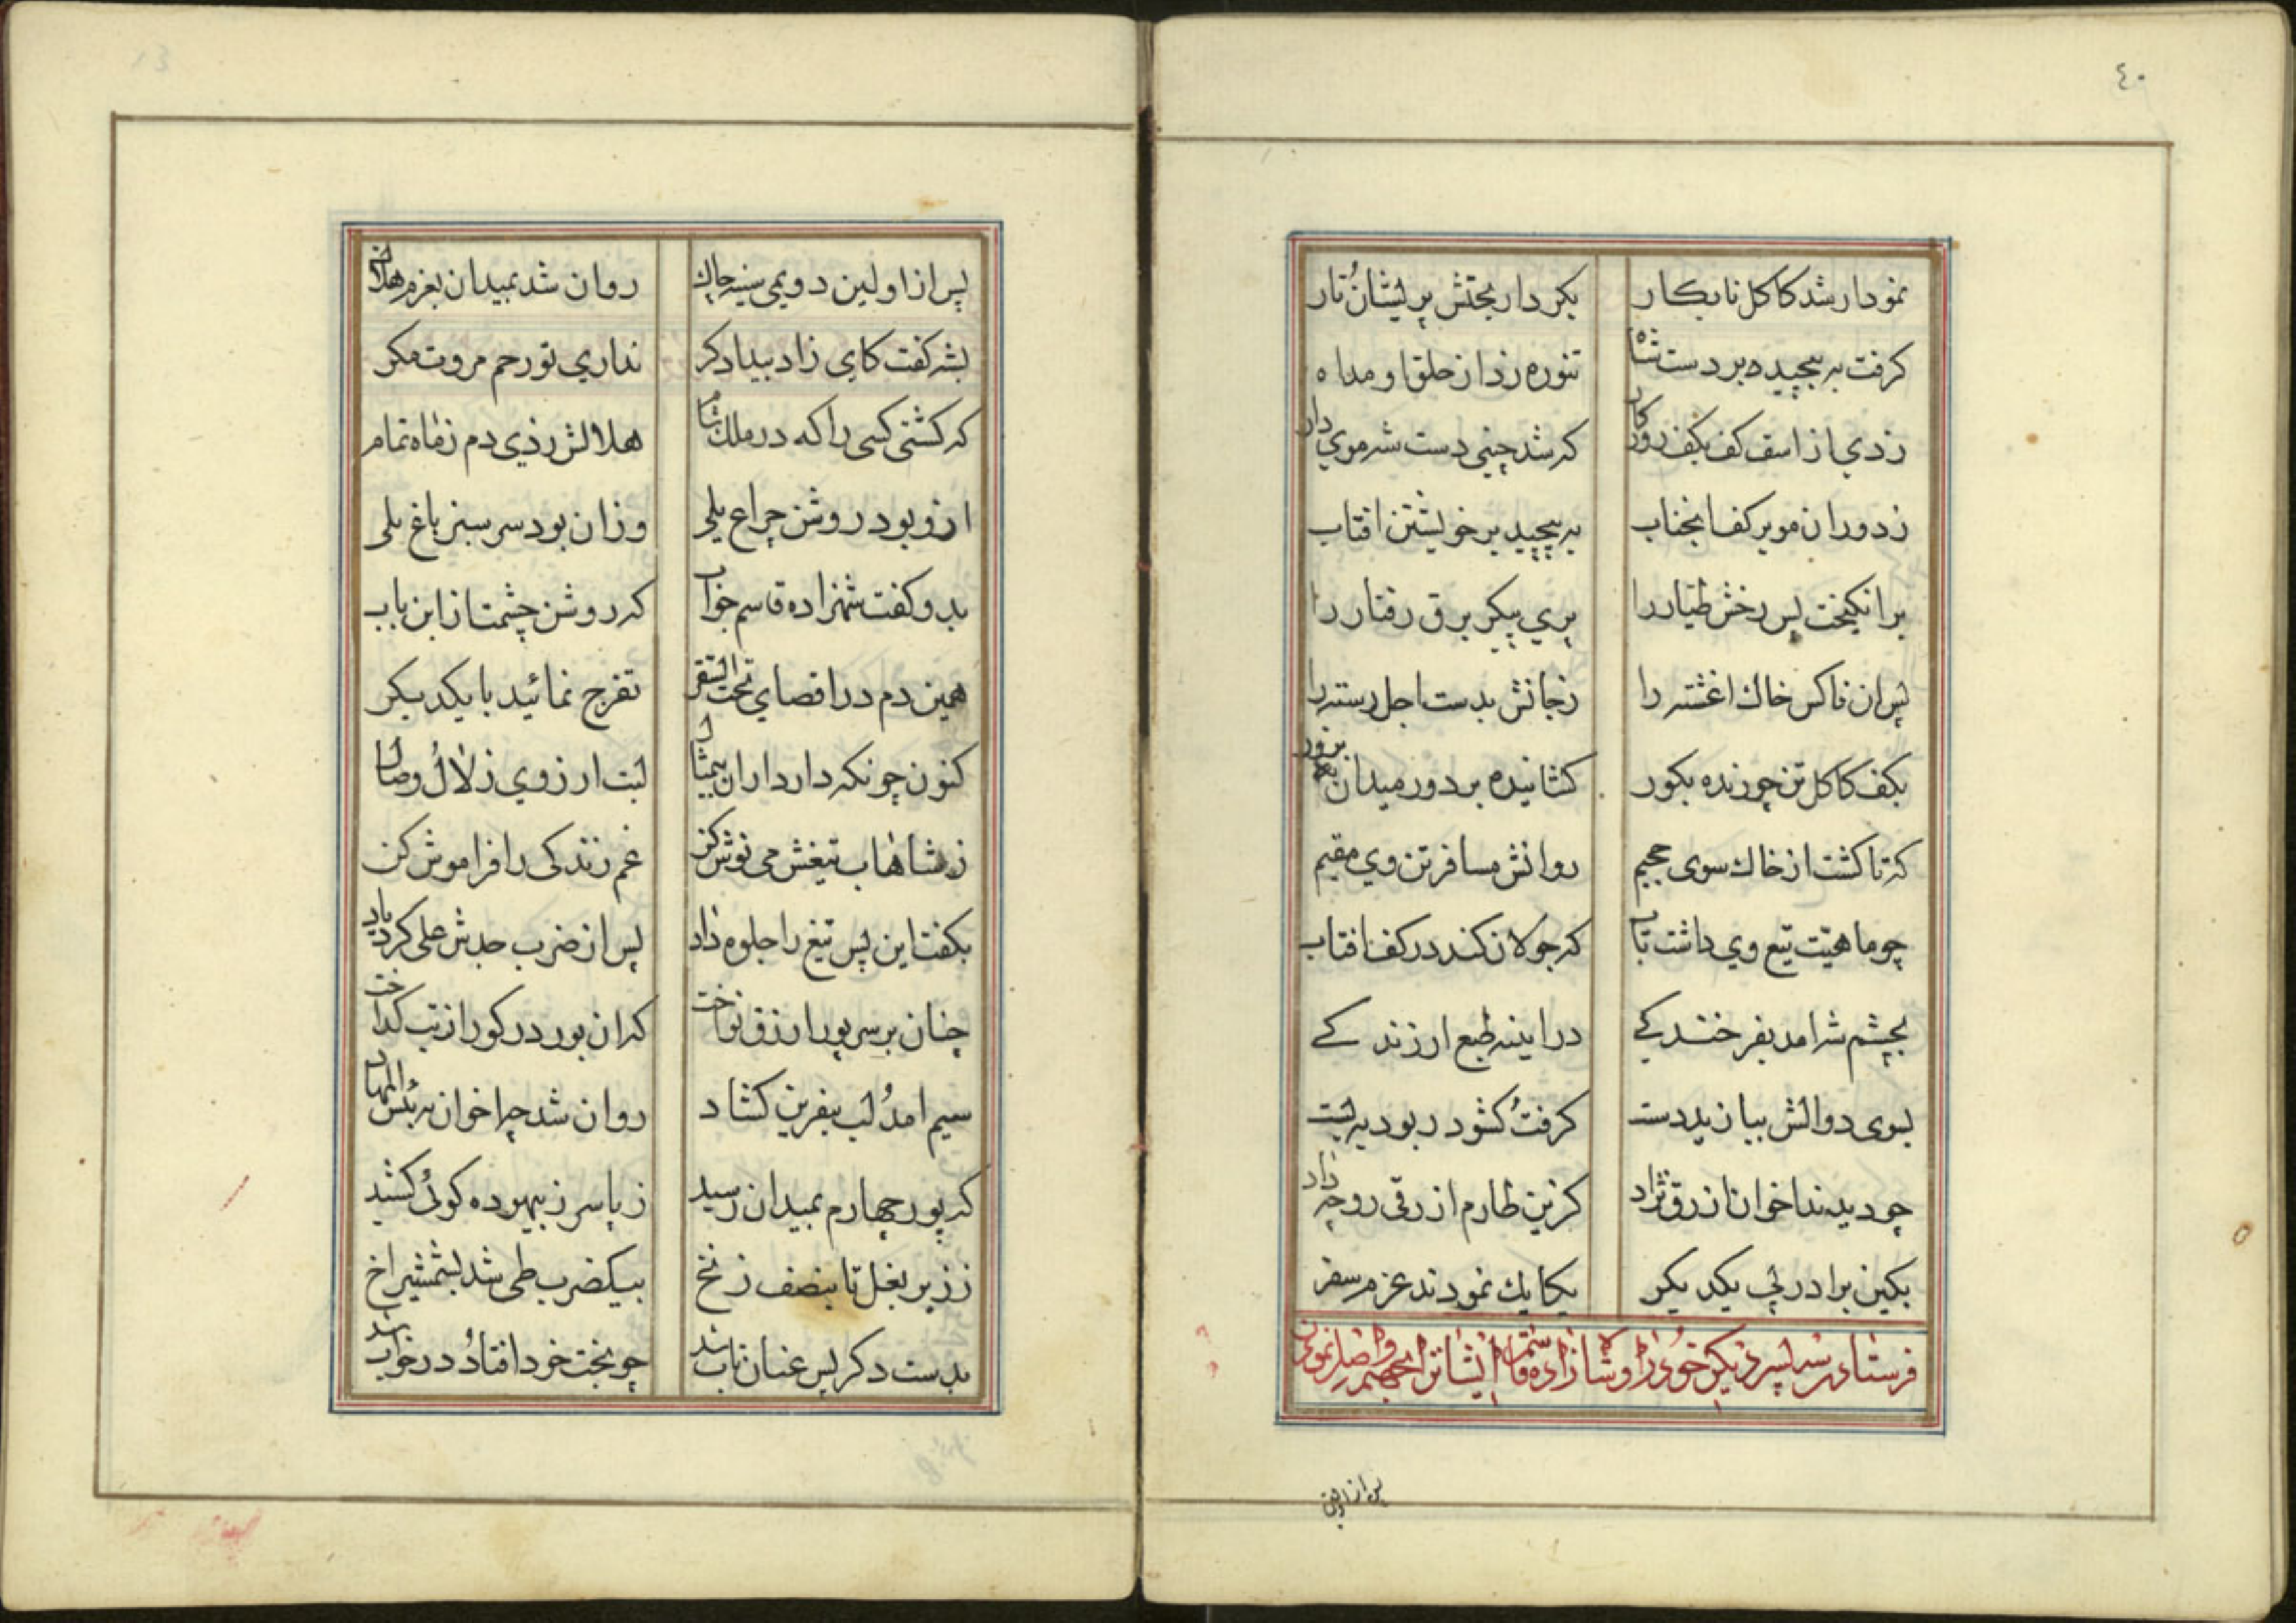 ٤٠
نمودار شد کاکل نابکار بکردار بختش پریشان تار
کرفت به پیچیده بر دست شاه تنوره زد از حلق او مد اه
زدی از اسف کف بکف روزکار که شد چنی دست شه موی دار
ز دوران موبر کف انجناب به پیچید بر خویشتن افتاب
برانکیخت پس رخش طیار را پری پیکر برق رفتار را
پس ان ناکس خاک اغشته را ز جانش بدست اجل رسته را
بکف کاکل تن چو زنده بکور کشانیده بر دور میدان بزور
که تا کشت از خاک سوی جحیم روانش مسافر تن وی مقیم
چو ماهیت تیع وی داشت تاب که جولان کند در کف افتاب
بچشم شه امد بفرخندکی در اینه طبع ارزندکے
بسوی دوالش بیازید دست کرفت کشود ربود به بست
چو دیدند اخوان ازرق نژاد کزین طارم ازرقی رو چه داد
بکین برادر پی یکدیکر یکایک نمودند عزم سفر
فرستادن سه پسر دیکر خود را و شاهزاده قاسم ایشانرا بجهنم واصل نمودن
پس از اولین
پس از اولین دویمی سینه چاک روان شد بمیدان بعزم هلاک
بشه کفت کای زاد بیدادکر نداری تو رحم مروت مکر
که کشتی کسی را که در ملک شام هلالش زدی دم ز ماه تمام
ازو بود روشن چراع یلی وزان بود سرسبز باغ یلی
بدو کفت شهزاده قاسم جواب که روشن چشمت از این باب
همین دم در اقصای تحت السقر تفرج نمائید با یکدیکر
کنون چونکه دارد اران بیمثال لبت ارزوی زلال وصال
ز شاهاب تیغش می نوش کن غم زندکی را فراموش کن
بکفت این پس تیغ را جلوه داد پس از ضرب جدش علی کرد یاد
چنان بر سر پور ارزق نواخت که ان پور در کور از تب کداخت
سیم امد لب بنفرین کشاد روان شد چو اخوان به بئس المهاد
که پور چهارم بمیدان رسید ز پا سر ز بیهوده کوئی کشید
ز زیر بغل تا بنصف زنخ بیکضرب طی شد بشمشیر اخ
بدست دکر پس عنان تاب شد چو بخت خود افتاد در خواب شد